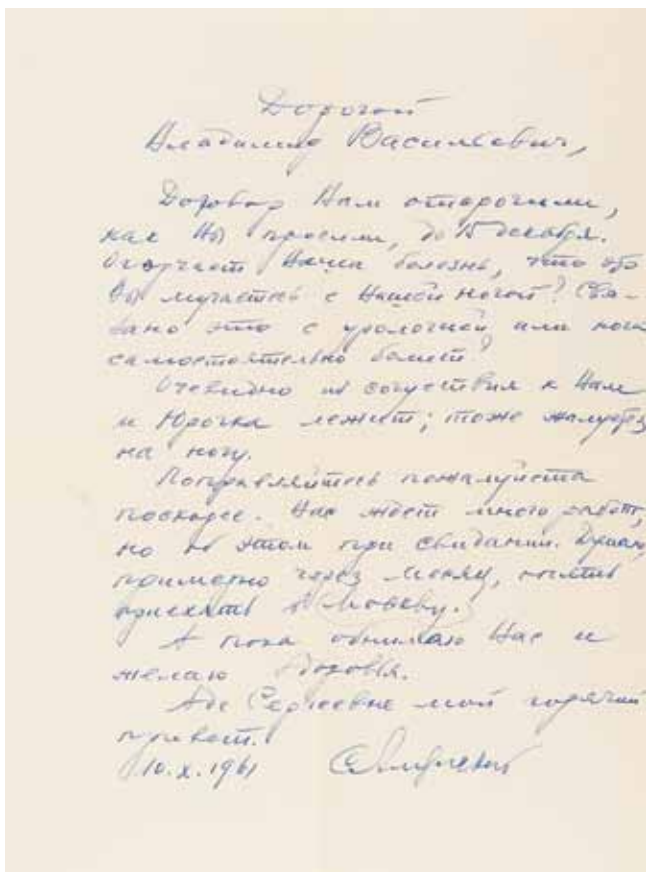 Дорогой
Владимир Васильевич,
Договор Вам отсрочили,
как Вы просили, до 15 декабря.
Огорчает Ваша болезнь, что это
Вы мучаетесь с Вашей ногой? Свя-
зано это с урологией или нога
самостоятельно болеет?
Очевидно из сочувствия к Вам
и Юрочка лежит; тоже жалуется
на ногу.
Поправляйтесь пожалуйста
поскорее. Нас ждет много работы,
но об этом при свидании. Думаю,
примерно через месяц, опять
приехать в Москву.
А пока обнимаю Вас и
желаю здоровья.
Аде Сергеевне мой горячий
привет.
10.X.1961